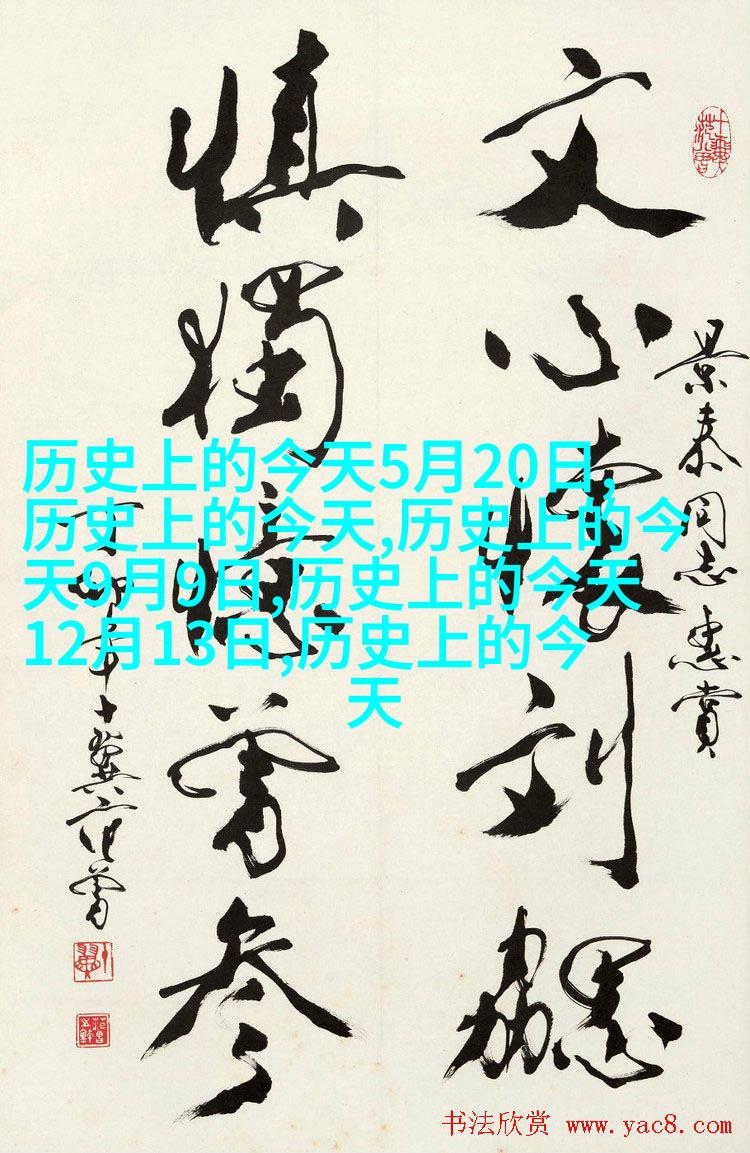 景泰同志惠賞
文心懷刘勰
慎獨憶曾參
丁卯年十翼范曾
历史上的今天5月20日,
历史上的今天,历史上的今
天9月9日,历史上的今天
12月13日,历史上的今
天
书法欣赏 www.yac8.com